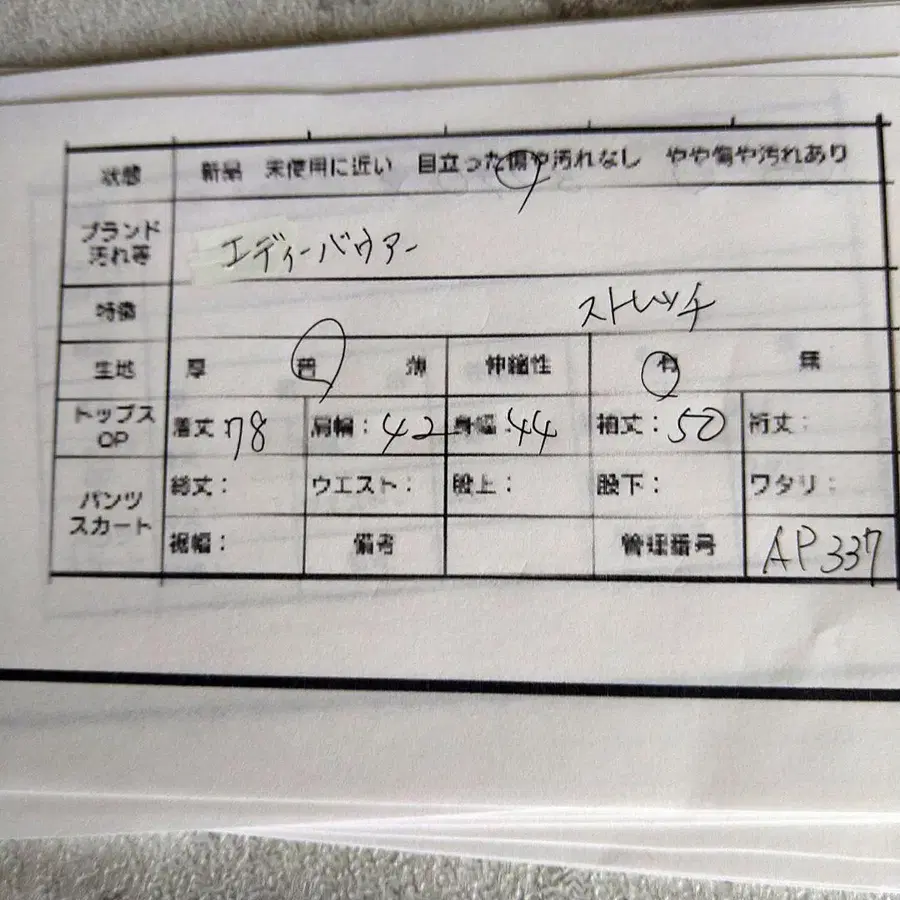 状態 新品 未使用に近い 目立った傷や汚れなし やや傷や汚れあり
ブランド
汚れ等 エディーバウアー
特徴 ストレッチ
生地 厚 普 薄 伸縮性 有 無
トップス
OP 着丈:78 肩幅:42 身幅:44 袖丈:50 裄丈:
パンツ
スカート 総丈: ウエスト:股上: 股下: ワタリ:
裾幅: 備考 管理番号 AP337